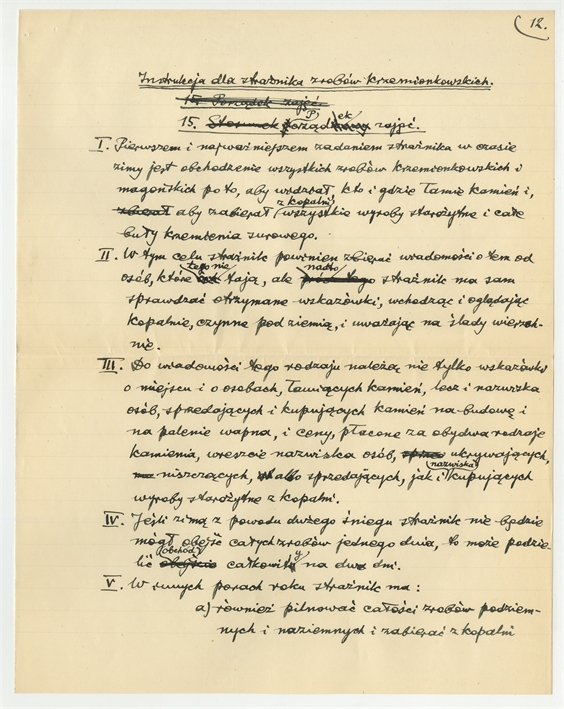 12.
Instrukcja dla strażnika zrobów krzemionkowskich.
15. Porządek zajęć.
15. Stosunek Porządek zajęć.
I. Pierwszem i najważniejszem zadaniem strażnika w czasie
zimy jest obchodzenie wszystkich zrobów krzemionkowskich i
magońskich po to, aby widział, kto i gdzie łamie kamień i,
zbierał aby zabierał z kopalni wszystkie wyroby starożytne i całe
buły krzemienia surowego.
II. W tym celu strażnik powinien zbierać wiadomości o tem od
osób, które tego nie tają, ale nadto strażnik ma sam
sprawdzać otrzymane wskazówki, wchodząc i oglądając
kopalnie, czynne pod ziemią, i uważając na ślady wierzch-
nie.
III. Do wiadomości tego rodzaju należą nie tylko wskazówki
o miejscu i o osobach, łamiących kamień, lecz i nazwiska
osób, sprzedających i kupujących kamień na budowę i
na palenie wapna, i ceny, płacone za obydwa rodzaje
kamienia, wreszcie nazwiska osób, ukrywających,
niszczących, albo sprzedających, jak i nazwiska kupujących
wyroby starożytne z kopalni.
IV. Jeśli zimą z powodu dużego śniegu strażnik nie będzie
mógł obejść całych zrobów jednego dnia, to może podzie-
lić obchód całkowity na dwa dni.
V. W innych porach roku strażnik ma:
a) również pilnować całości zrobów podziem-
nych i naziemnych i zabierać z kopalni